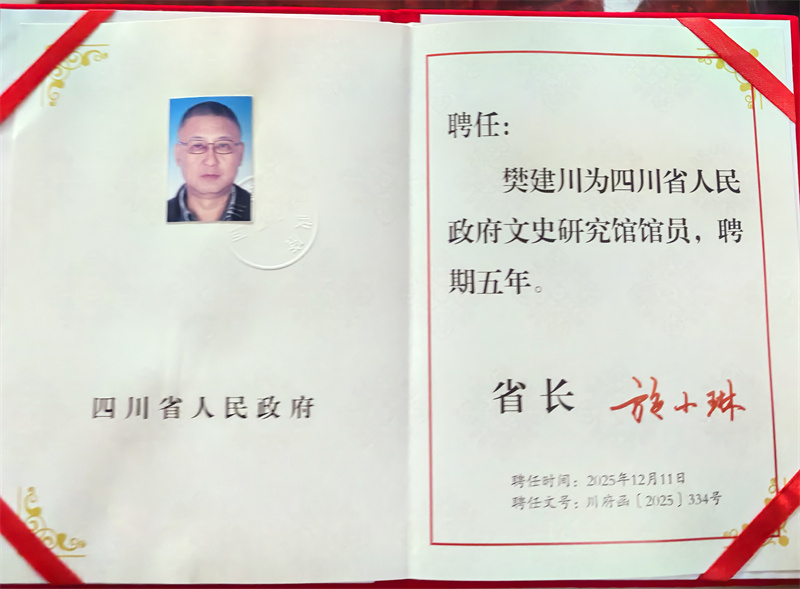 四川省人民政府
聘任：
樊建川为四川省人民
政府文史研究馆馆员，聘
期五年。
省长 施小琳
聘任时间：2025年12月11日
聘任文号：川府函〔2025〕334号